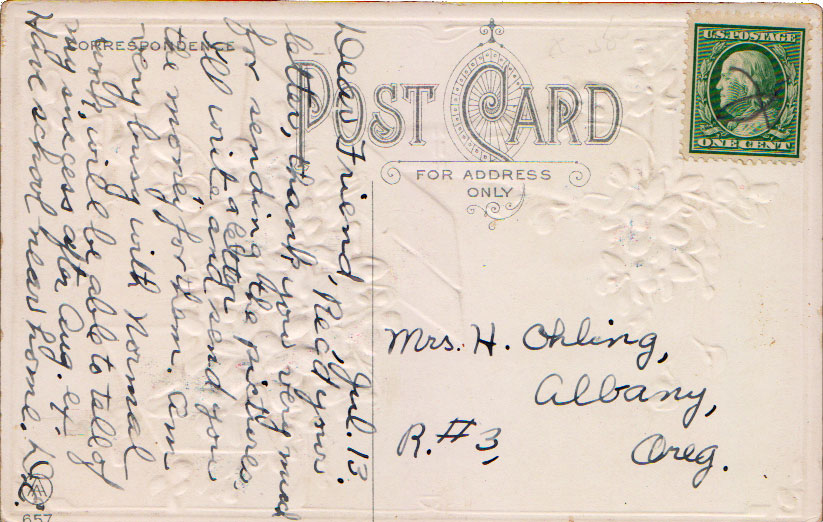 CORRESPONDENCE
POST CARD
FOR ADDRESS
ONLY
U.S. POSTAGE
ONE CENT
Jul. 13.
Dear Friend, Rec'd your
letter, thank you very much
for sending the pictures,
I'll write a letter
and send you
the money for them. Am
very busy with Normal
work, will be able to tell of
my success after Aug. ex.
Have school near home.
Mrs. H. Ohling,
Albany,
R. #3, Oreg.
657